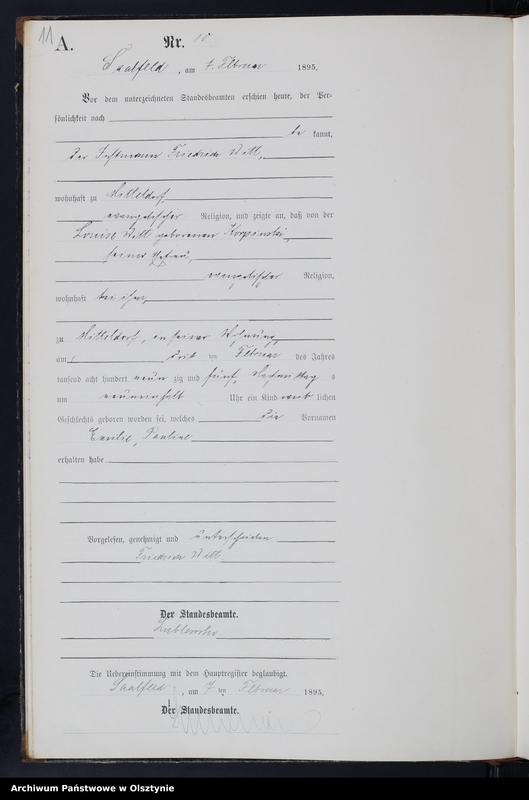 11
A.
Nr. 10
Saalfeld, am 7. Februar 1895.
Vor dem unterzeichneten Standesbeamten erschien heute, der Per-
sönlichkeit nach
be kannt,
der Friedrich Will,
wohnhaft zu Mitteldorf,
evangelischer Religion, und zeigte an, daß von der
Louise Will geborenen
seiner Ehefrau,
evangelischer Religion,
wohnhaft bei ihm,
zu Mitteldorf, in seiner Wohnung,
am Februar des Jahres
tausend acht hundert neun zig und fünf, Nachmittag s
um neuneinhalb Uhr ein Kind weib lichen
Geschlechts geboren worden sei, welches die Vornamen
Emilie, Pauline
erhalten habe
Vorgelesen, genehmigt und unterschrieben
Friedrich Will
Der Standesbeamte.
Die Uebereinstimmung mit dem Hauptregister beglaubigt.
Saalfeld, am 7 ten Februar 1895.
Der Standesbeamte.
Archiwum Państwowe w Olsztynie